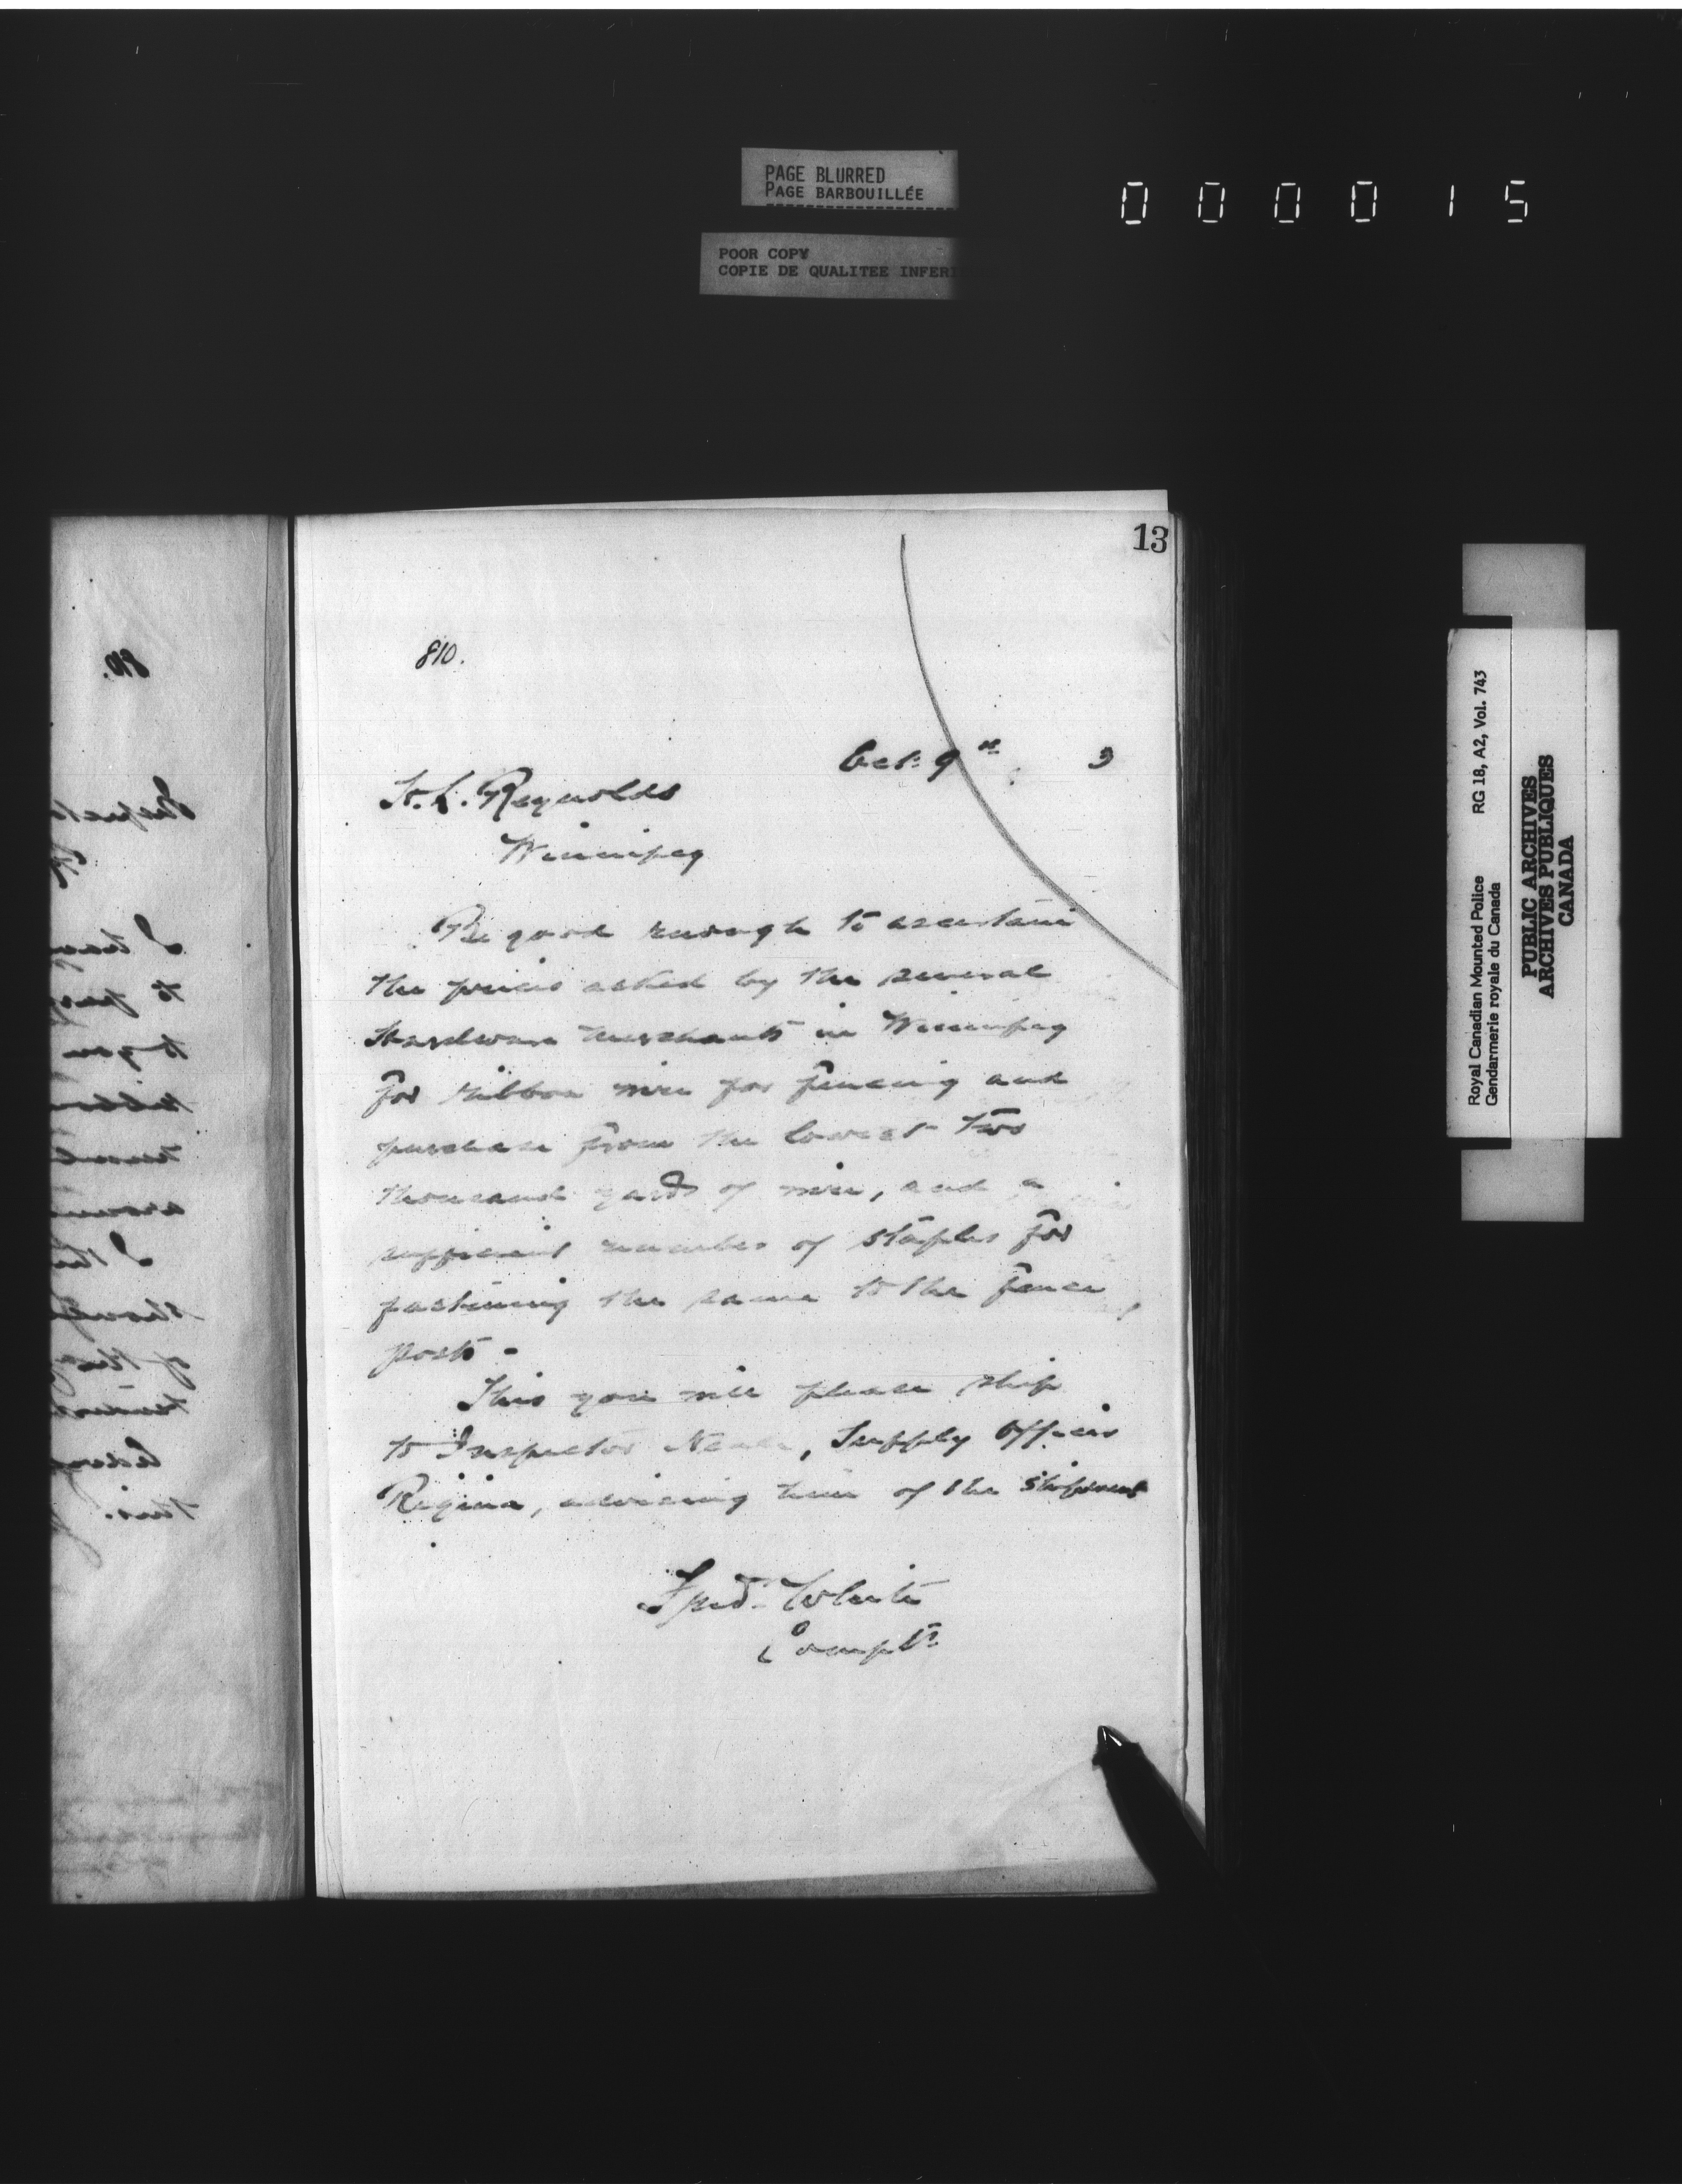 PAGE BLURRED
PAGE BARBOUILLÉE
000015
POOR COPY
COPIE DE QUALITEE INFERI
13
810.
Oct: 9th 3
H. L. Reynolds
Winnipeg
Be good enough to ascertain
the prices asked by the several
Hardware Merchants in Winnipeg
for ribbon wire for fencing and
purchase from the lowest two
thousand yards of wire, and a
sufficient number of staples for
fastening the same to the fence
posts -
This you will please ship
to Inspector Neale, Supply Officer
Regina, advising him of the shipment
Fred. White
Comptr
Royal Canadian Mounted Police RG 18, A2, Vol. 743
Gendarmerie royale du Canada
PUBLIC ARCHIVES
ARCHIVES PUBLIQUES
CANADA